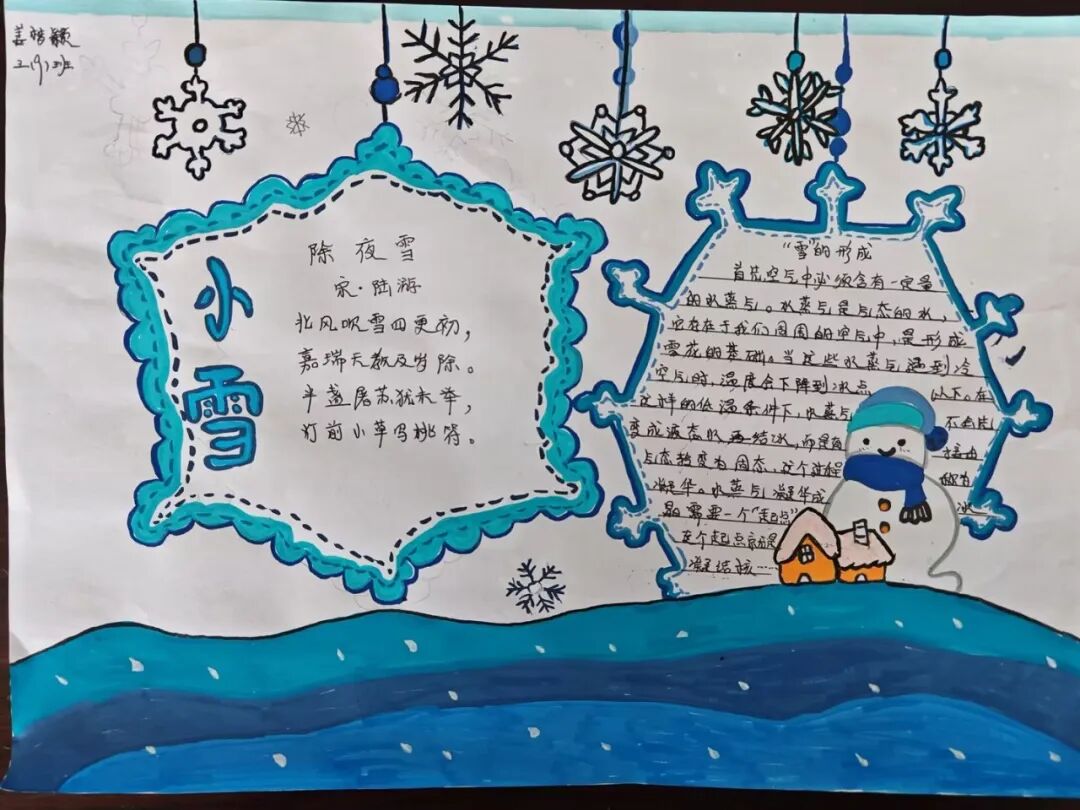 三(9)班
小雪
除夜雪
宋·陆游
北风吹雪四更初，
嘉瑞天教及岁除。
半盏屠苏犹未举，
灯前小草写桃符。
“雪”的形成
首先空气中必须含有一定量
的水蒸气。水蒸气是气态的水，
它存在于我们周围的空气中，是形成
雪花的基础。当这些水蒸气遇到冷
空气时，温度会下降到冰点 以下。在
这样的低温条件下，水蒸气 不会先
变成液态水再结冰，而是直 接由
气态转变为固态，这个过程 称为
凝华。水蒸气凝华成 冰
晶需要一个“起点”
这个起点就是
凝结核……